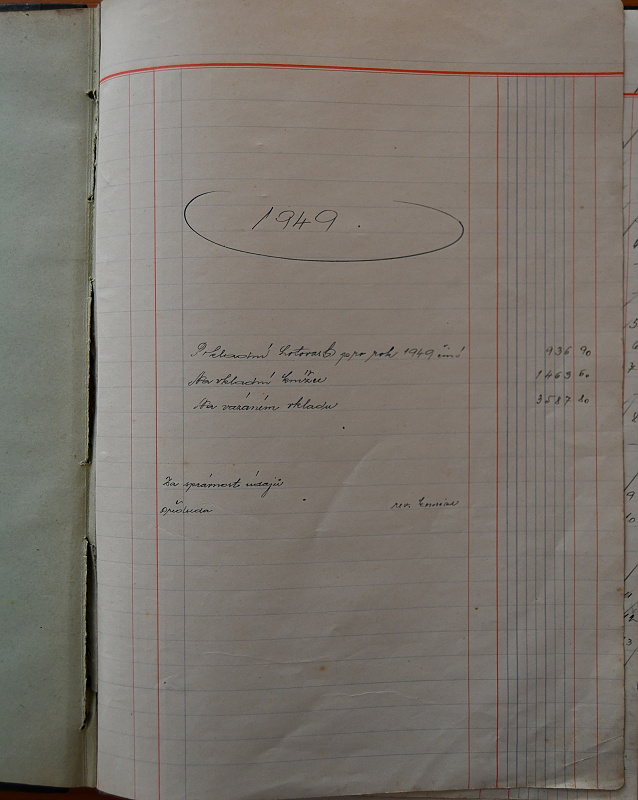 1949.
Pokladní hotovost pro rok 1949 činí 936 90
Na vkladní knížce 1463 60
Na vázaném vkladu 3587 20
Za správnost údajů
předseda rev. komise